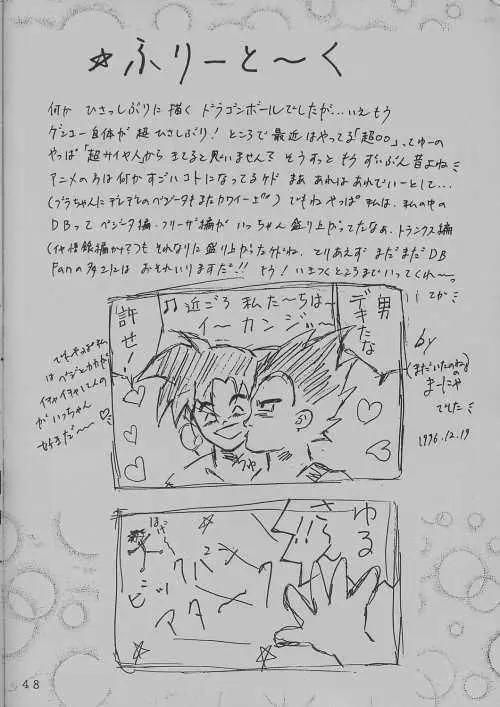 ☆ふりーと〜く
何か ひさっしぶりに描く ドラゴンボールでしたが...いえもう
ゲンコー自体が超ひさしぶり! ところで最近はやってる「超○○」、てゆーの
やっぱ「超サイヤ人」から きてると思いません? そうすっと もう ずいぶん昔よね
アニメの方は何かすごいコトになってるケド まあ あれはあれでいーとして...
(ブラちゃんにデレデレのベジータもまたカワイー) でもねやっぱ私は、私の中の
DBって ベジータ編・フリーザ編が いっちゃん盛り上がってたなぁ、トランクス編
も それなりに盛り上がったケドね、とりあえず まだまだDB
Fanの多さには おそれいりますだ!! もう! いきつくところまでいってくれ〜っ
てか
男
デキたな
近ごろ 私た〜ちは〜
イ〜カンジ〜
♫
許せ!
でもやっぱ私
は ベジとカカが
イチャイチャしてんの
がいっちゃん
好きだ〜〜
by
(まだいたのね)
まーにゃ
でした
1996.12.19
ゆる
さん
!!
48